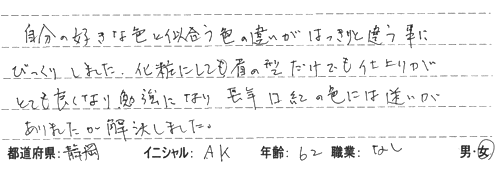 自分の好きな色と似合う色の違いがはっきりと違う事に
びっくりしました、化粧にしても眉の型だけでも仕上りが
とても良くなり勉強になり 長年 口紅の色には迷いが
ありましたが解決しました。
都道府県: 静岡 イニシャル: AK 年齢: 62 職業: なし 男・女